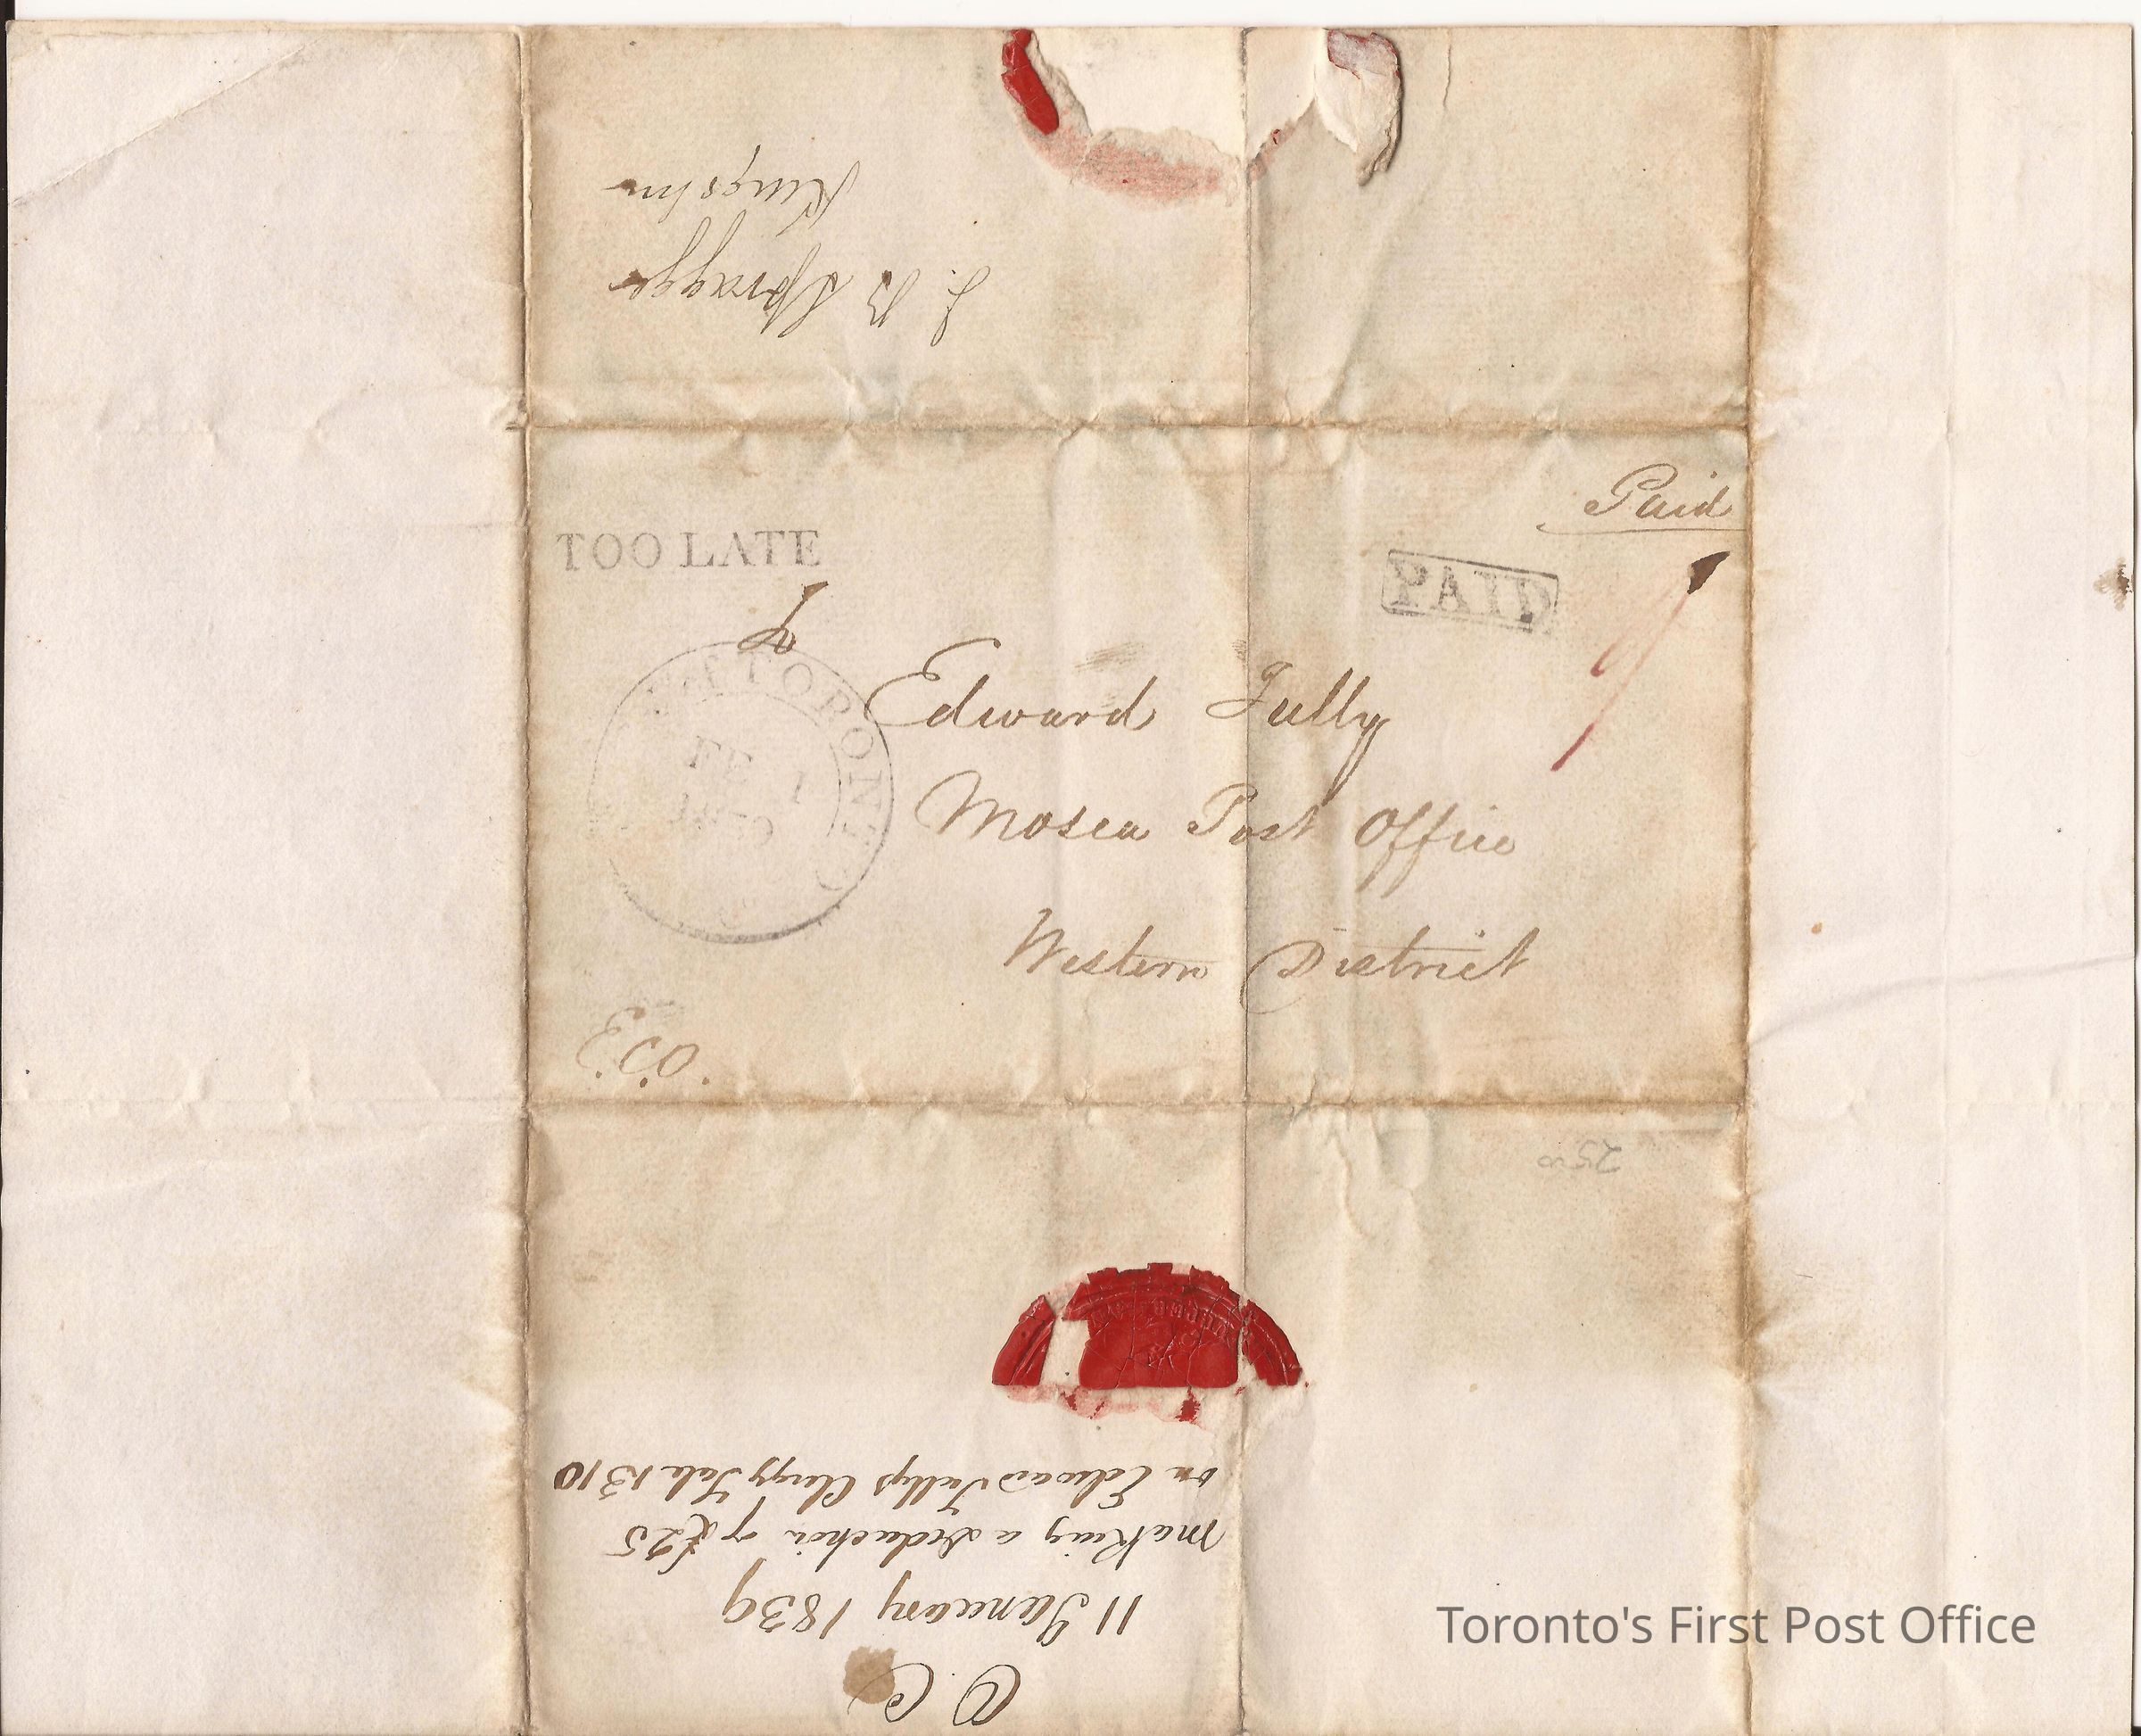 J. B. Spragge
Kingston
Paid
TOO LATE
PAID
9
To
TORONTO
FE 1
1839
Edward Tully
Mosea Post Office
Western District
O.C.
11 January 1839
making a deduction of £25
on Edward Tullys Clergy Sale 1310
Toronto's First Post Office